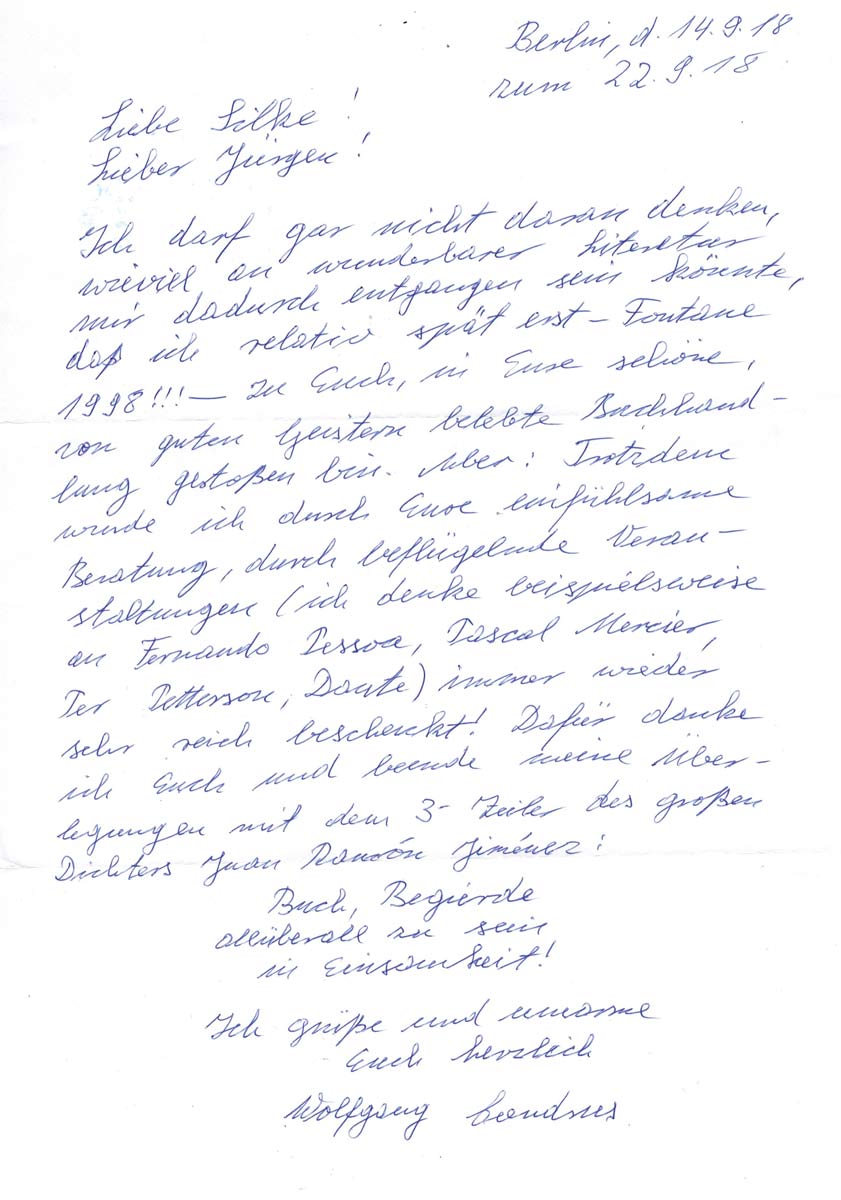 Berlin, d. 14.9.18
zum 22.9.18
Liebe Silke!
Lieber Jürgen!
Ich darf gar nicht daran denken,
wieviel an wunderbarer Literatur
mir dadurch entgangen sein könnte,
daß ich relativ spät erst – Fontane
1998!!! – zu Euch, in Eure schöne,
von guten Geistern belebte Buchhand-
lung gestoßen bin. Aber: Trotzdem
wurde ich durch Eure einfühlsame
Beratung, durch beflügelnde Veran-
staltungen (ich denke beispielsweise
an Fernando Pessoa, Pascal Mercier,
Per Petterson, Dante) immer wieder
sehr reich beschenkt! Dafür danke
ich Euch und beende meine Über-
legungen mit dem 3-Zeiler des großen
Dichters Juan Ramón Jiménez:
Buch, Begierde
allüberall zu sein
in Einsamkeit!
Ich grüße und umarme
Euch herzlich
Wolfgang